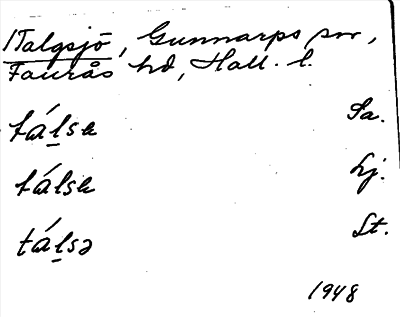 1 Talgsjö, Gunnarps sn,
Faurås hd, Hall. l.
tá̱lsə Sa.
tálsə Lj.
tá̱lsə St.
1948